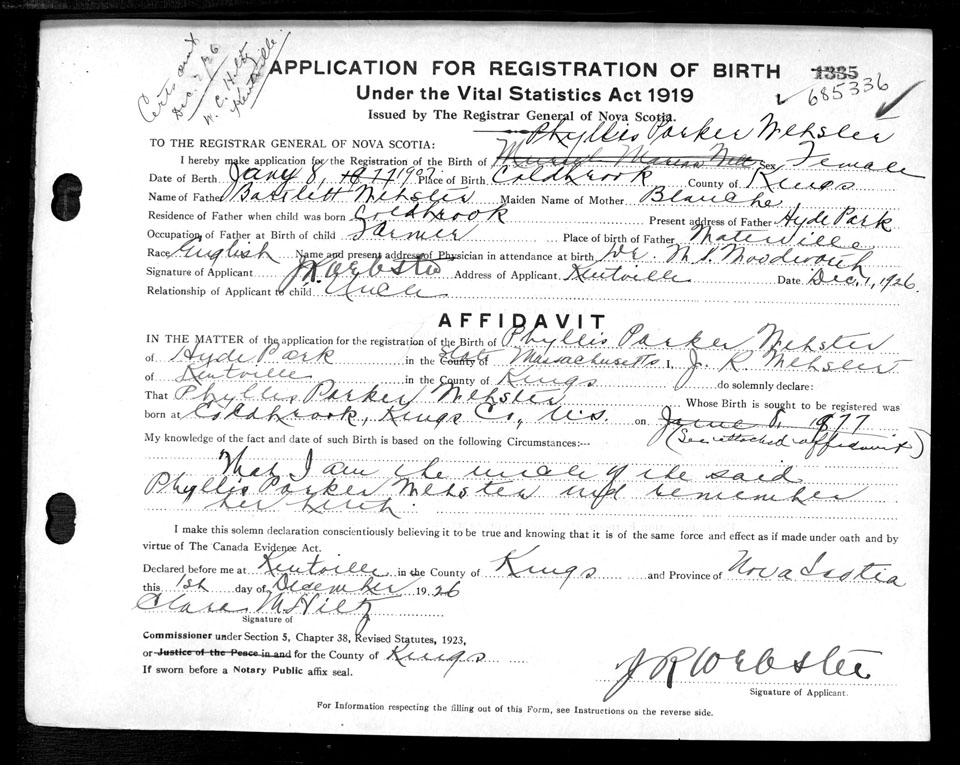 Certs sent
Dec. 3/26
W. C. Hiltz
Kentville.
APPLICATION FOR REGISTRATION OF BIRTH
1335
685336
Under the Vital Statistics Act 1919
Issued by The Registrar General of Nova Scotia.
Phyllis Parker Webster
TO THE REGISTRAR GENERAL OF NOVA SCOTIA:
I hereby make application for the Registration of the Birth of Muriel Marian Sex Female
Date of Birth Jany 8, 1877 1907 Place of Birth Coldbrook County of Kings
Name of Father Bartlett Webster Maiden Name of Mother Blanche
Residence of Father when child was born Coldbrook Present address of Father Hyde Park
Occupation of Father at Birth of child Farmer Place of birth of Father Waterville
Race English Name and present address of Physician in attendance at birth Dr. M. S. Woodworth
Signature of Applicant J R Webster Address of Applicant Kentville Date Dec. 1, 1926.
Relationship of Applicant to child Uncle
AFFIDAVIT
IN THE MATTER of the application for the registration of the Birth of Phyllis Parker Webster
of Hyde Park in the County of State Massachusetts I, J. R. Webster
of Kentville in the County of Kings do solemnly declare:
That Phyllis Parker Webster Whose Birth is sought to be registered was
born at Coldbrook, Kings Co., N.S. on 8, 1877
(See attached affidavit)
My knowledge of the fact and date of such Birth is based on the following Circumstances:--
That I am the uncle of the said
Phyllis Parker Webster and remember
her birth.
I make this solemn declaration conscientiously believing it to be true and knowing that it is of the same force and effect as if made under oath and by
virtue of The Canada Evidence Act.
Declared before me at Kentville in the County of Kings and Province of Nova Scotia
this 1st day of December 1926
Clara M. Hiltz
Signature of
Commissioner under Section 5, Chapter 38, Revised Statutes, 1923,
or Justice of the Peace in and for the County of Kings
If sworn before a Notary Public affix seal.
J R Webster
Signature of Applicant.
For Information respecting the filling out of this Form, see Instructions on the reverse side.